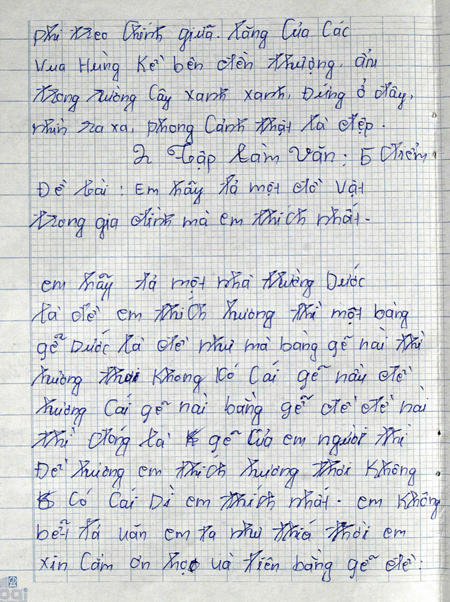 phi treo Chính giuã. Lăng Của Các
Vua Hùng Kề bên đền thượng, ẩn
trong rường Cây xanh xanh, Đứng ở đây,
nhìn ra xa, phong Cảnh thật là đẹp.
2 Tập Làm Văn: 5 điểm
Đề bài: Em hãy tả một đồ Vật
trong gia đình mà em thích nhất.
em hãy tả một nhà thường Dước
là để em thích hương thì một bàng
gễ Dước là để như mà bàng gễ nài thì
hương thơi Không Có Cái gễ nầu để
hương Cái gễ nài bàng gễ để để nài
thì đóng là gễ Của em người thì
Để hương em thích hương thời Không
Có Cái Dì em thích nhất. em Không
bết tả uăn em tả như thiá thời em
xin Cảm ơn học uà tiên bàng gễ để: